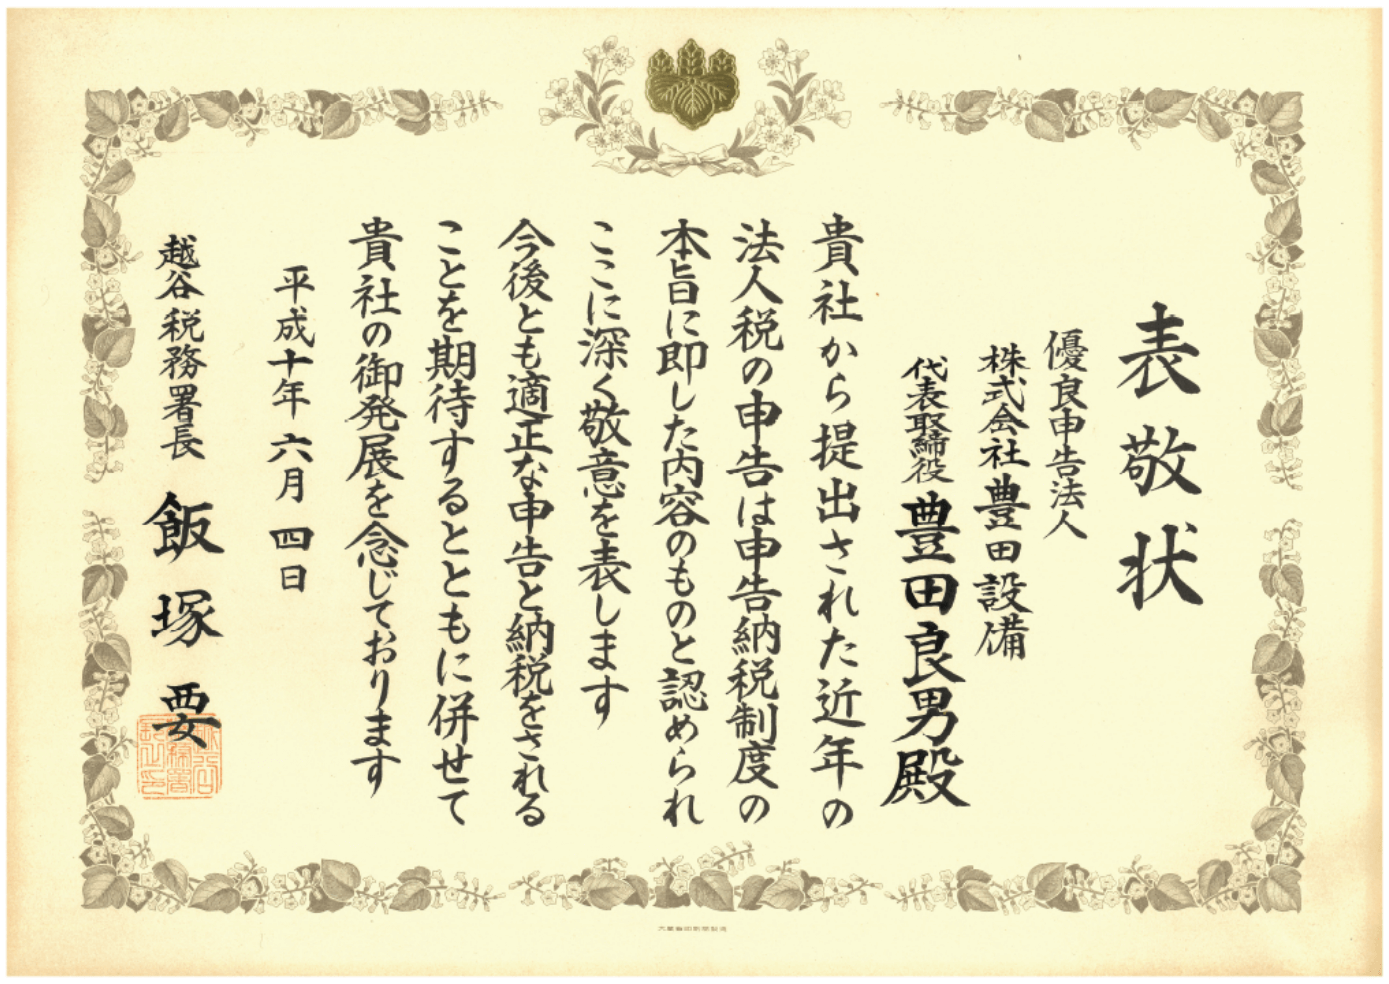 表敬状
優良申告法人
株式会社豊田設備
代表取締役 豊田良男殿
貴社から提出された近年の
法人税の申告は申告納税制度の
本旨に即した内容のものと認められ
ここに深く敬意を表します
今後とも適正な申告と納税をされる
ことを期待するとともに併せて
貴社の御発展を念じております
平成十年六月四日
越谷税務署長 飯塚要